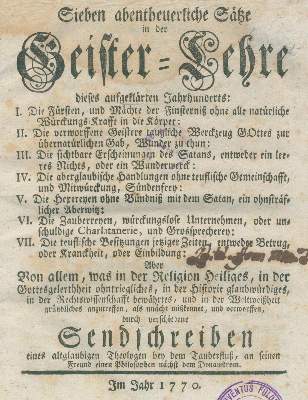 Sieben abentheuerliche Sätze
in der
Geister-Lehre
dieses aufgeklärten Jahrhunderts:
I. Die Fürsten, und Mächte der Finsterniß ohne alle natürliche
Würkungs-Krafft in die Körper:
II. Die verworffene Geistere taugliche Werckzeug GOttes zur
übernatürlichen Gab, Wunder zu thun:
III. Die sichtbare Erscheinungen des Satans, entweder ein lee-
res Nichts, oder ein Wunderwerk:
IV. Die aberglaubische Handlungen ohne teuflische Gemeinschafft,
und Mitwürckung, Sündenfrey:
V. Die Hexereyen ohne Bündniß mit dem Satan, ein ohnsträf-
licher Aberwitz:
VI. Die Zaubereyen, würckungslose Unternehmen, oder un-
schuldige Charlatanerie, und Großsprecherey:
VII. Die teuflische Besitzungen jetziger Zeiten, entweder Betrug,
oder Kranckheit, oder Einbildung:
Aber
Von allem, was in der Religion Heiliges, in der
Gottesgelerthheit ohntriegliches, in der Historie glaubwürdiges,
in der Rechtswissenschafft bewährtes, und in der Weltweißheit
gründliches anzutreffen, als mißkennet, und verworffen,
durch
Sendschreiben
eines altglaubigen Theologen bey dem Tauberfluß, an seinen
Freund einen Philosophen nächst dem Donaustrom.
Im Jahr 1770.